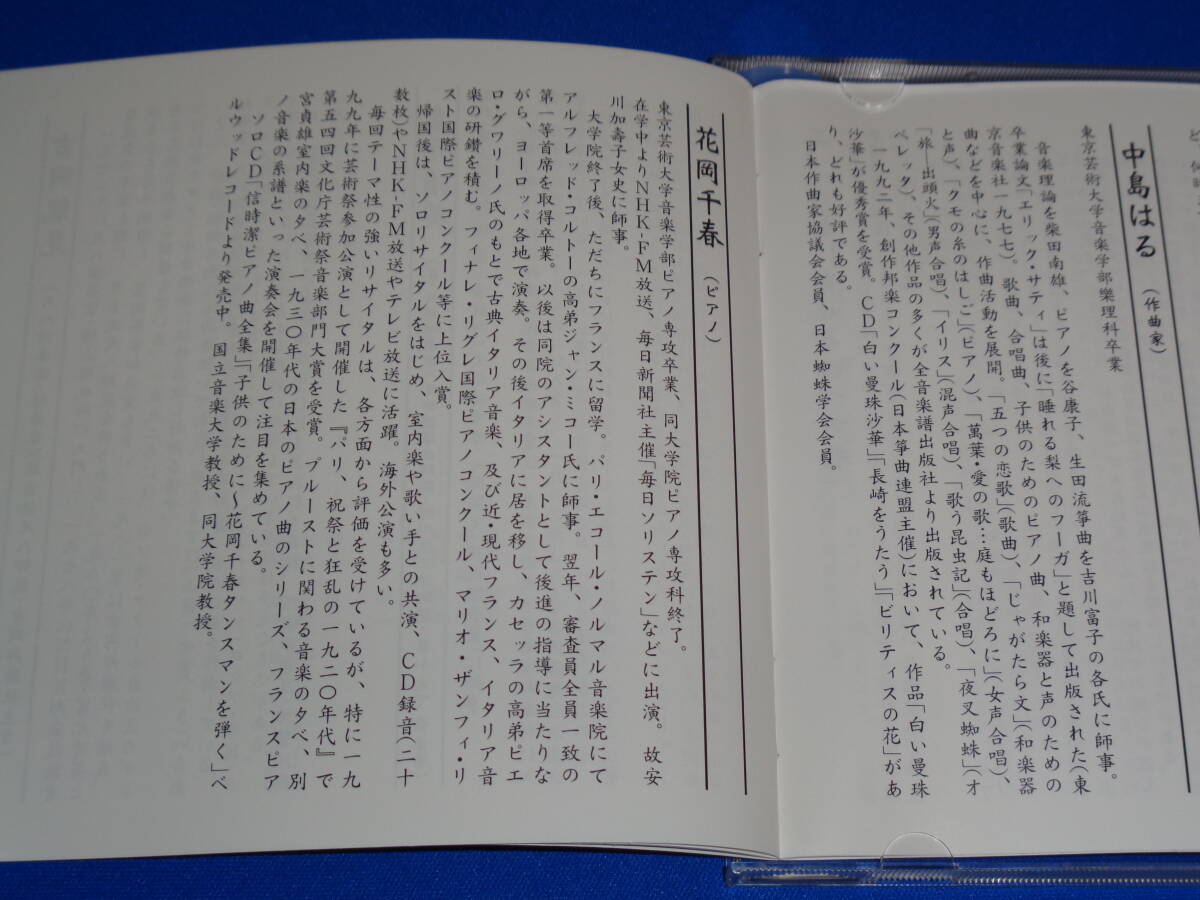 中島はる（作曲家）
東京芸術大学音楽学部樂理科卒業
音楽理論を柴田南雄、ピアノを谷康子、生田流箏曲を吉川富子の各氏に師事。
卒業論文「エリック・サティ」は後に「睡れる梨へのフーガ」と題して出版された（東
京音楽社一九七七）。歌曲、合唱曲、子供のためのピアノ曲、和楽器と声のための
曲などを中心に、作曲活動を展開。「五つの恋歌」（歌曲）、「じゃがたら文」（和楽器
と声）、「クモの糸のはしご」（ピアノ）、「萬葉・愛の歌…庭もほどろに」（女声合唱）、
「旅―出頭火」（男声合唱）、「イリス」（混声合唱）、「歌う昆虫記」（合唱）、「夜叉蜘蛛」（オ
ペレッタ）、その他作品の多くが全音楽譜出版社より出版されている。
一九九二年、創作邦楽コンクール（日本箏曲連盟主催）において、作品「白い曼珠
沙華」が優秀賞を受賞。ＣＤ「白い曼珠沙華」「長崎をうたう」「ビリティスの花」があ
り、どれも好評である。
日本作曲家協議会会員、日本蜘蛛学会会員。
花岡千春（ピアノ）
東京芸術大学音楽学部ピアノ専攻卒業、同大学院ピアノ専攻科終了。
在学中よりＮＨＫ-ＦＭ放送、毎日新聞社主催「毎日ソリステン」などに出演。故安
川加壽子女史に師事。
大学院終了後、ただちにフランスに留学。パリ・エコール・ノルマル音楽院にて
アルフレッド・コルトーの高弟ジャン・ミコー氏に師事。翌年、審査員全員一致の
第一等首席を取得卒業。以後は同院のアシスタントとして後進の指導に当たりな
がら、ヨーロッパ各地で演奏。その後イタリアに居を移し、カセッラの高弟ピエ
ロ・グワリーノ氏のもとで古典イタリア音楽、及び近・現代フランス、イタリア音
楽の研鑽を積む。フィナレ・リグレ国際ピアノコンクール、マリオ・ザンフィ・リ
スト国際ピアノコンクール等に上位入賞。
帰国後は、ソロリサイタルをはじめ、室内楽や歌い手との共演、ＣＤ録音（二十
数枚）やＮＨＫ-ＦＭ放送やテレビ放送に活躍。海外公演も多い。
毎回テーマ性の強いリサイタルは、各方面から評価を受けているが、特に一九
九九年に芸術祭参加公演として開催した『パリ、祝祭と狂乱の一九二〇年代』で
第五四回文化庁芸術祭音楽部門大賞を受賞。プルーストに関わる音楽の夕べ、別
宮貞雄室内楽の夕べ、一九三〇年代の日本のピアノ曲のシリーズ、フランスピア
ノ音楽の系譜といった演奏会を開催して注目を集めている。
ソロＣＤ「信時潔ピアノ曲全集」「子供のために～花岡千春タンスマンを弾く」ベ
ルウッドレコードより発売中。国立音楽大学教授、同大学院教授。